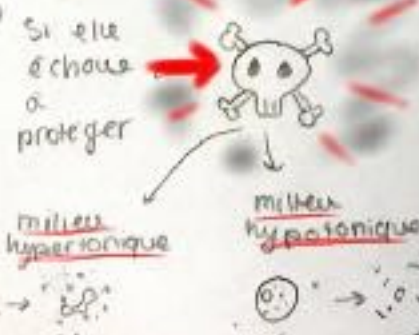 Si elle
échoue
à
proteger
milieu
hypertonique
milieu
hypotonique